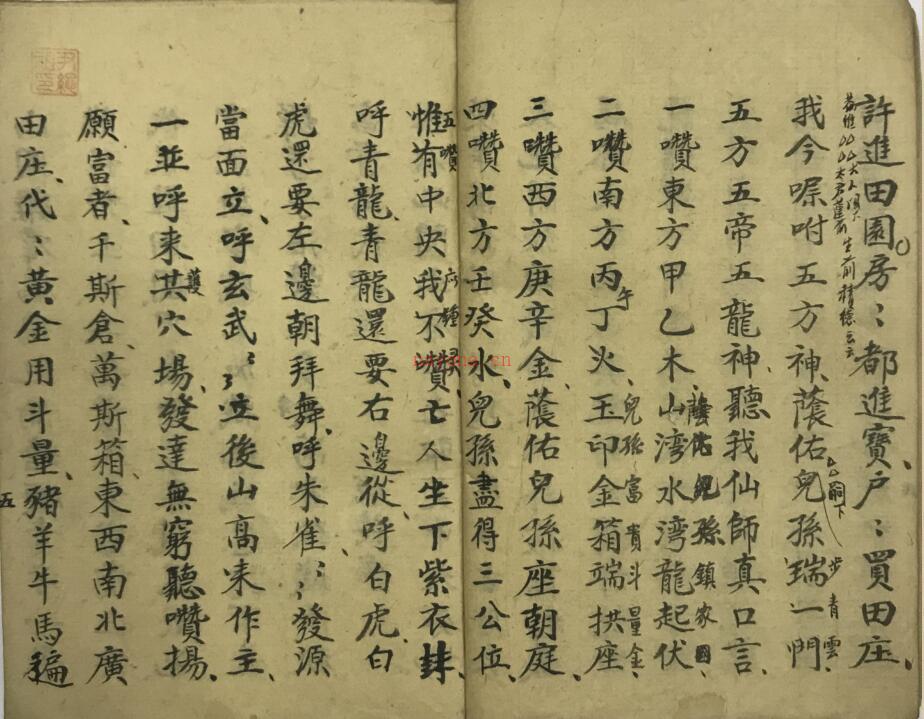 許進田園房〻都進寶户〻買田庄
我今喂咐五方神蔭佑兒孫瑞一門
步青雲
五方五帝五龍神聽我仙師真口言
一讚東方甲乙木山湾水湾龍起伏
蔭佑兒孫鎮家國
二讚南方丙丁火玉印金箱端拱座
午
兒孫富貴斗量金
三讚西方庚辛金蔭佑兒孫座朝庭
四讚北方壬癸水兒孫盡得三公位
五讚
惟有中央我不讚亡人坐下紫衣
呼青龍青龍還要右邊從呼白虎白
虎還要左邊朝拜舞呼朱雀〻〻發源
當面立呼玄武〻〻立後山高来作主
一並呼来其穴場發達無窮聽讚揚
護
願富者千斯倉萬斯箱東西南北廣
田庄代〻黄金用斗量豬羊牛馬遍
五